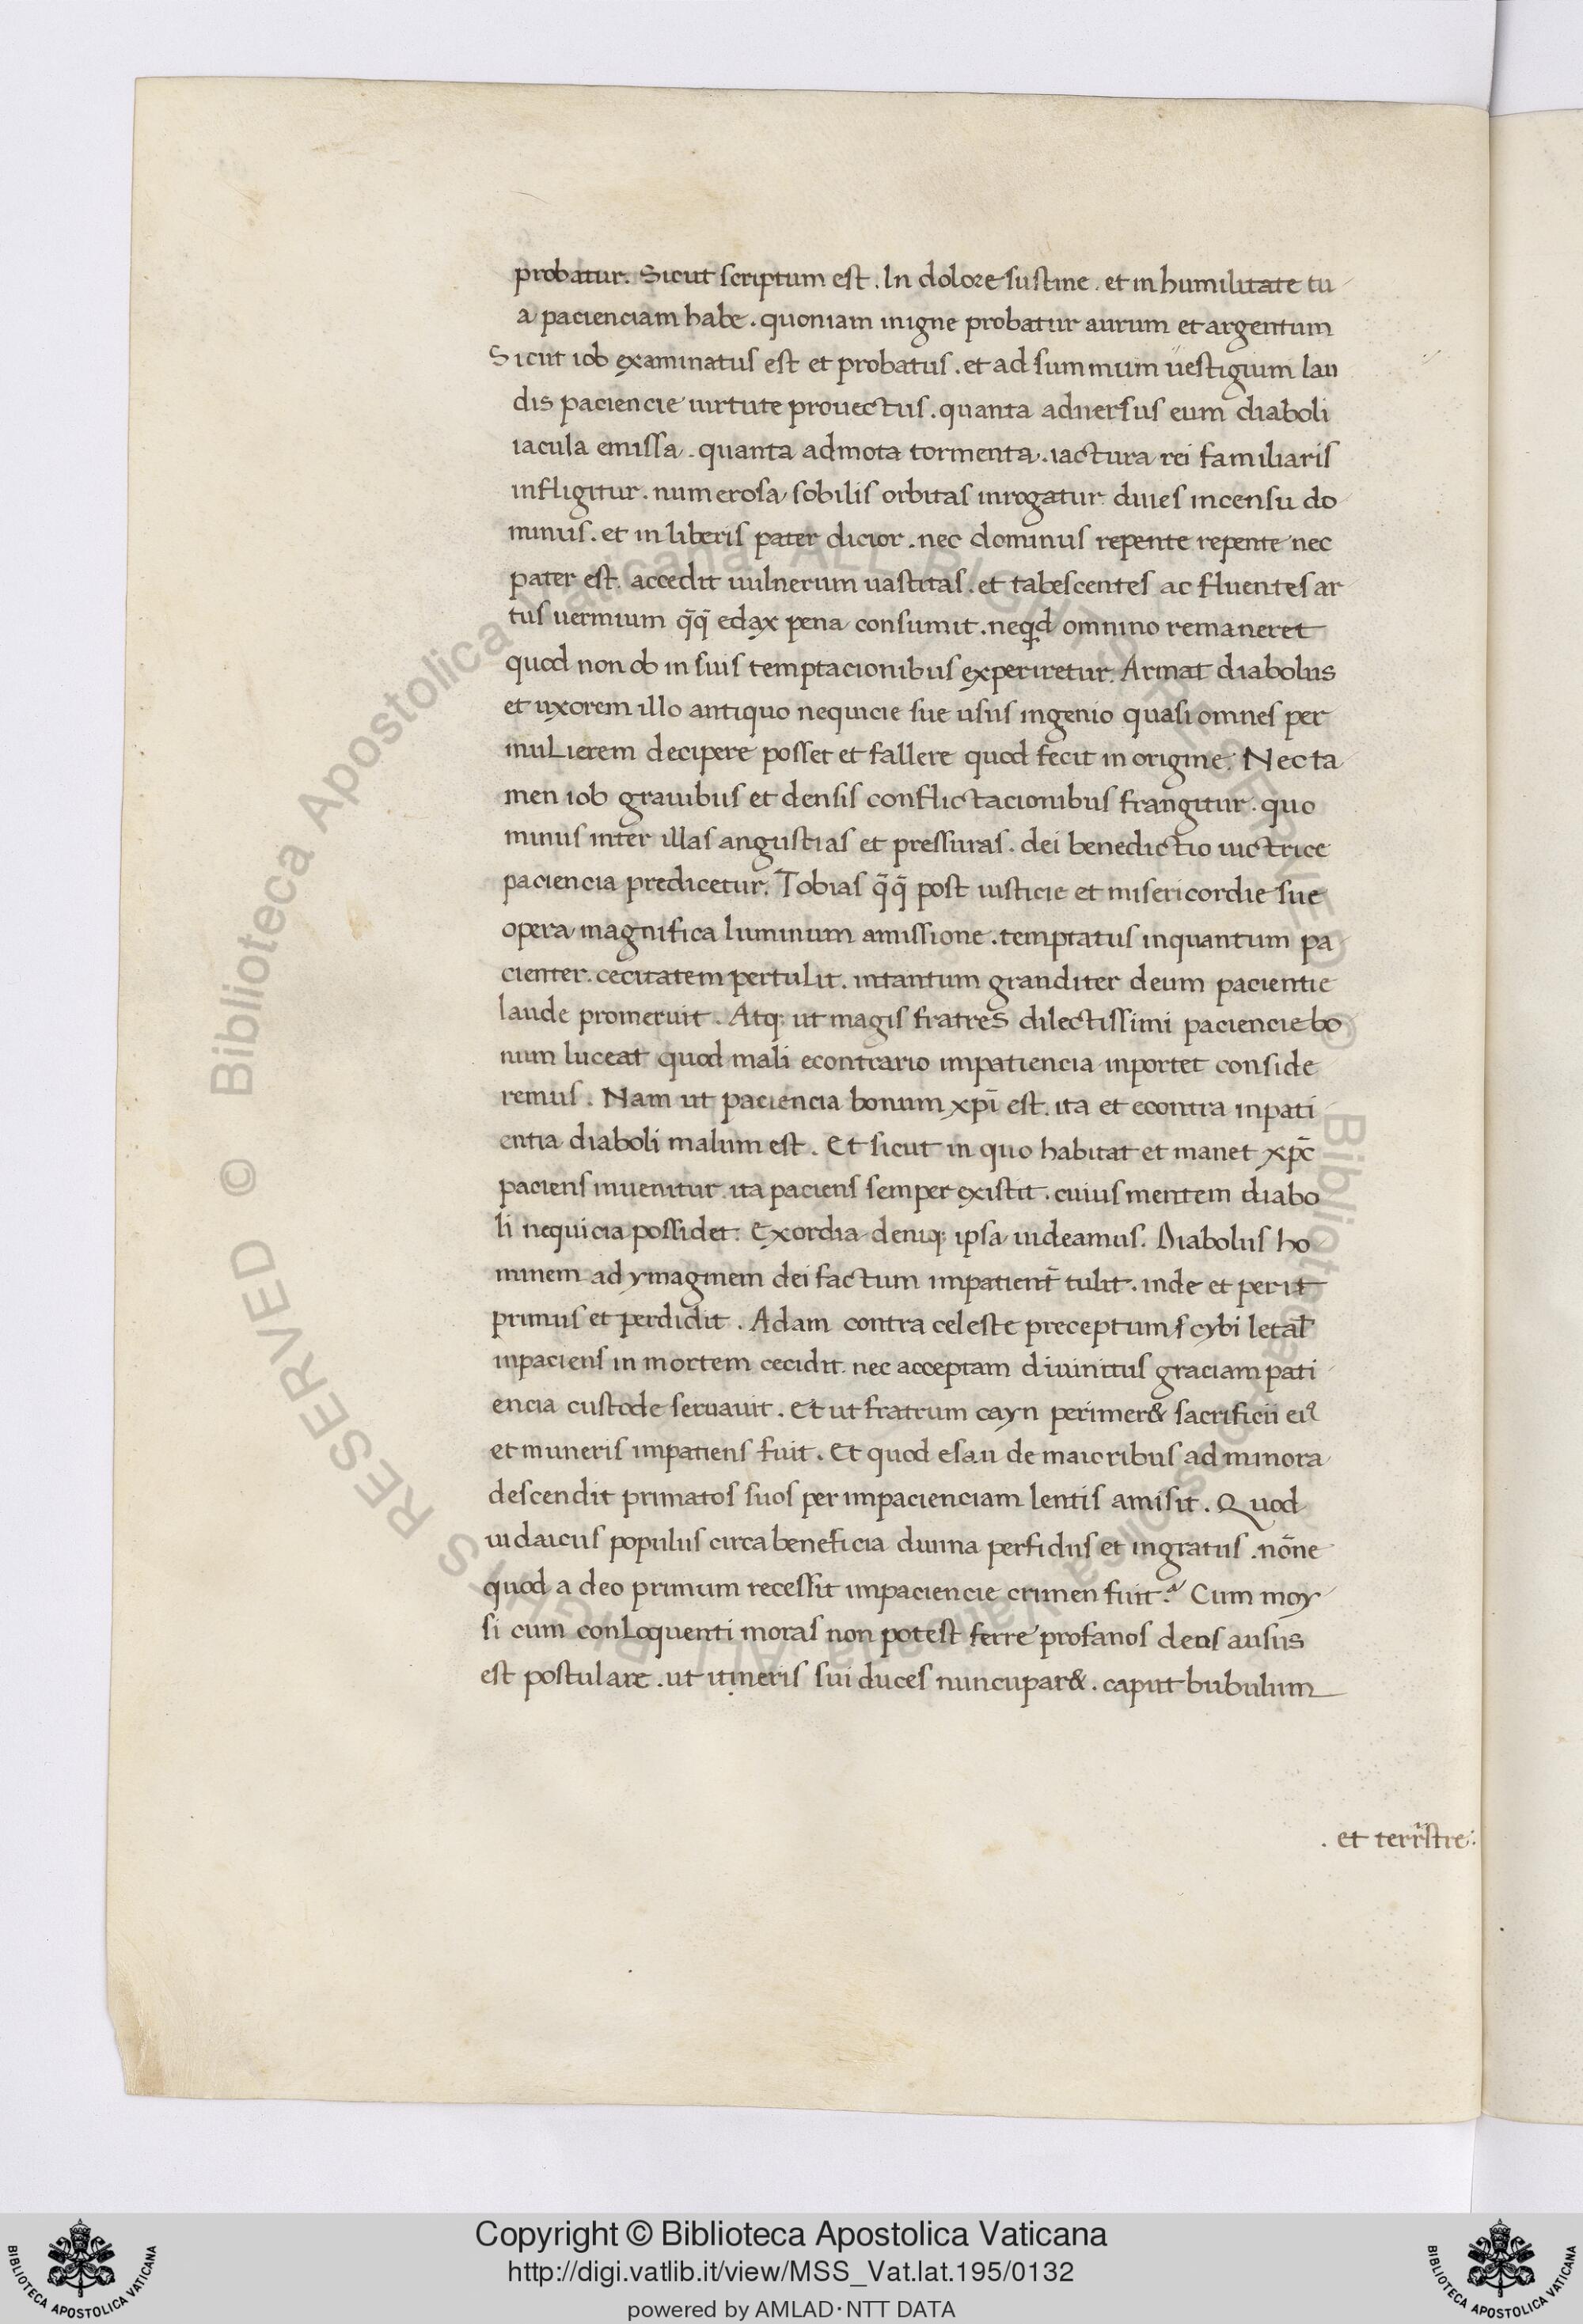 probatur. Sicut scriptum est. In dolore sustine. et in humilitate tu
a pacienciam habe. quoniam in igne probatur aurum et argentum
Sicut iob examinatus est et probatus. et ad summum uestigium lau
dis paciencie uirtute prouectus. quanta aduersus eum diaboli
iacula emissa. quanta admota tormenta. iactura rei familiaris
infligitur. numerosa sobilis orbitas inrogatur diues in censu do
minus. et in liberis pater dicior. nec dominus repente repente nec
pater est. accedit uulnerum uastitas. et tabescentes ac fluentes ar
tus uermium q̄q̄ edax pena consumit. neqd omnino remaneret
quod non ob in suis temptacionibus experiretur. Armat diabolus
et uxorem illo antiquo nequicie sue usus ingenio quasi omnes per
muLierem decipere posset et fallere quod fecit in origine. Nec ta
men iob grauibus et densis conflictacionibus frangitur. quo
minus inter illas angustias et pressuras. dei benedictio uictrice
paciencia predicetur. Tobias q̄q̄ post iusticie et misericordie sue
opera magnifica luminum amissione. temptatus inquantum pa
cienter. cecitatem pertulit. intantum granditer deum pacientie
laude promeruit. Atq: ut magis fratres dilectissimi paciencie bo
num luceat quod mali econtrario impatiencia inportet conside
remus. Nam ut paciencia bonum xp̄i est. ita et econtra inpati
entia diaboli malum est. Et sicut in quo habitat et manet xp̄c
paciens inuenitur. ita paciens semper existit. cuius mentem diabo
li nequicia possidet. Exordia deniq: ipsa uideamus. Diabolus ho
minem ad ymaginem dei factum impatient̄ tulit. inde et periit
primus et perdidit. Adam contra celeste preceptum s cybi letal̄
inpaciens in mortem cecidit. nec acceptam diuinitus graciam pati
encia custode seruauit. Et ut fratrum cayn perimer& sacrificii ei⁹
et muneris impatiens fuit. Et quod esau de maioribus ad minora
descendit primatos suos per impacienciam lentis amisit. Quod
iudaicus populus circa beneficia diuina perfidus et ingratus. nōne
quod a deo primum recessit impaciencie crimen fuit? Cum moy
si cum conLoquenti moras non potest ferre profanos deos ausus
est postulare. ut itineris sui duces nuncupar&. caput bubulum
. et terrestre:
Copyright © Biblioteca Apostolica Vaticana
http://digi.vatlib.it/view/MSS_Vat.lat.195/0132
powered by AMLAD·NTT DATA